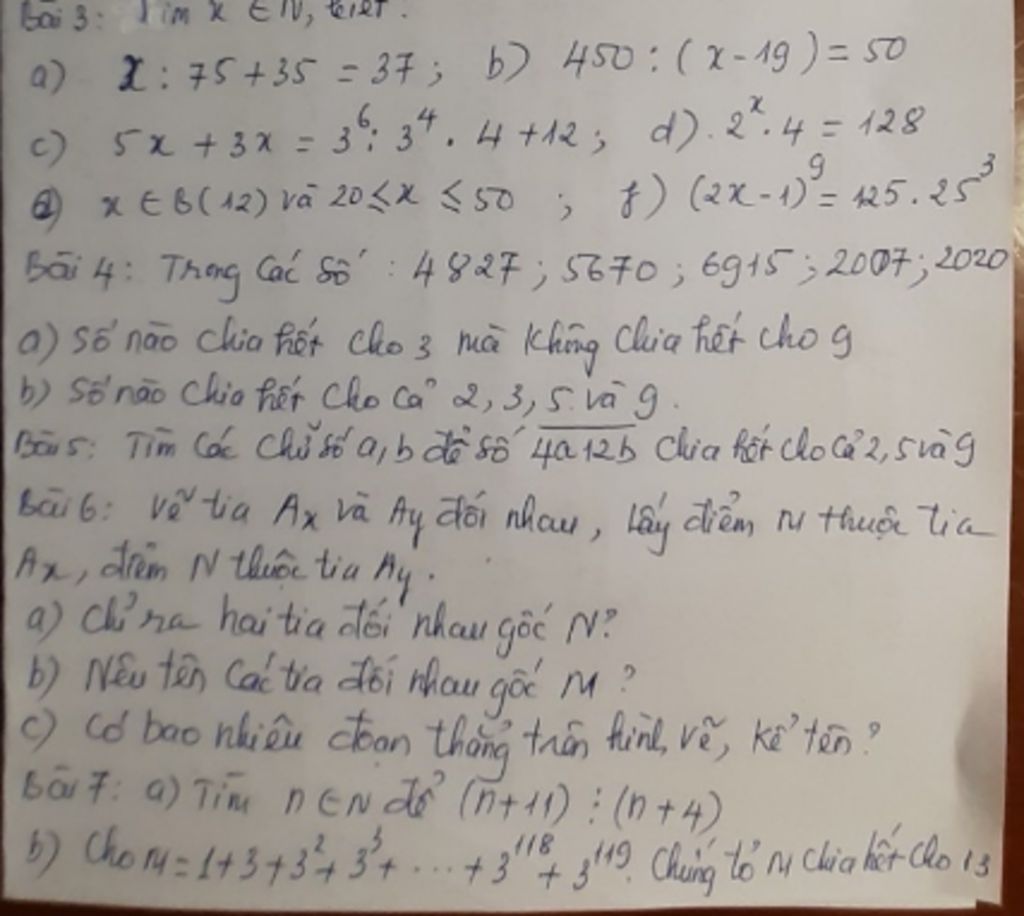 Bài 3: Tìm x ∈ N, biết:
a) x : 75 + 35 = 37; b) 450 : (x - 19) = 50
c) 5x + 3x = 3⁶ : 3⁴ . 4 + 12; d) 2ˣ . 4 = 128
e) x ∈ B(12) và 20 ≤ x ≤ 50 ; f) (2x - 1)⁹ = 125 . 25³
Bài 4: Trong các số : 4827 ; 5670 ; 6915 ; 2007 ; 2020
a) Số nào chia hết cho 3 mà không chia hết cho 9
b) Số nào chia hết cho cả 2, 3, 5 và 9.
Bài 5: Tìm các chữ số a, b để số 4a12b chia hết cho cả 2, 5 và 9
Bài 6: Vẽ tia Ax và Ay đối nhau, lấy điểm M thuộc tia
Ax, điểm N thuộc tia Ay.
a) Chỉ ra hai tia đối nhau gốc N?
b) Nêu tên các tia đối nhau gốc M?
c) Có bao nhiêu đoạn thẳng trên hình vẽ, kể tên?
Bài 7: a) Tìm n ∈ N để (n + 11) ⋮ (n + 4)
b) Cho M = 1 + 3 + 3² + 3³ + ... + 3¹¹⁸ + 3¹¹⁹. Chứng tỏ M chia hết cho 13